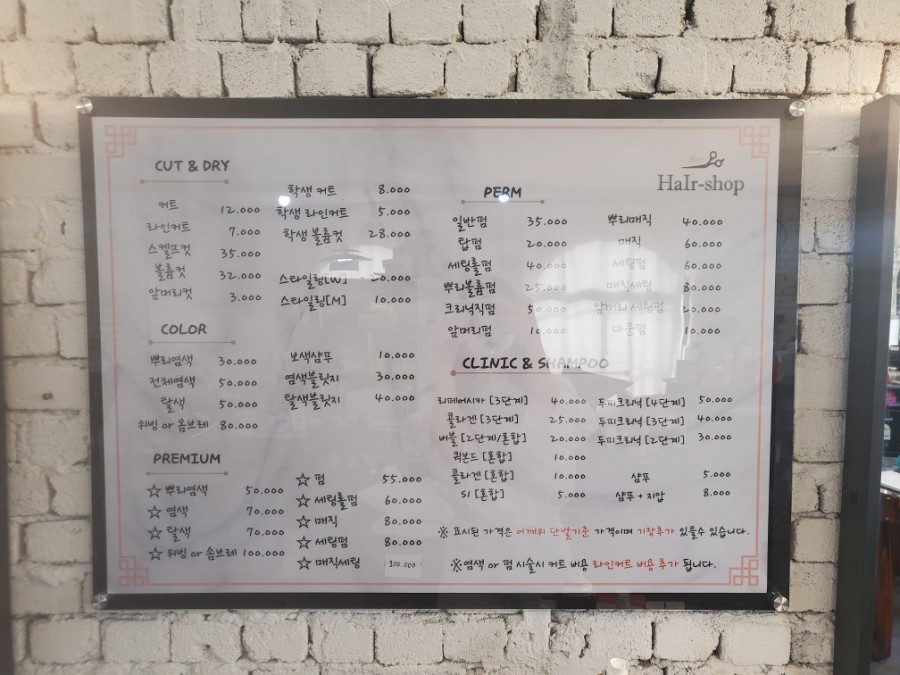 HaIr-shop
CUT & DRY
커트 12.000
라인커트 7.000
스켈프컷 35.000
볼륨컷 32.000
앞머리컷 3.000
학생 커트 8.000
학생 라인커트 5.000
학생 볼륨컷 28.000
스타일링[W]
스타일링[M] 10.000
COLOR
뿌리염색 30.000
전체염색 50.000
탈색 50.000
위빙 or 옴브레 80.000
보색샴푸 10.000
염색블릿지 30.000
탈색블릿지 40.000
PREMIUM
☆ 뿌리염색 50.000
☆ 염색 70.000
☆ 탈색 70.000
☆ 위빙 or 솜브레 100.000
☆ 펌 55.000
☆ 세팅롤펌 60.000
☆ 매직 80.000
☆ 세팅펌 80.000
☆ 매직세팅 100.000
PERM
일반펌 35.000
탑펌 20.000
세팅롤펌 40.000
뿌리볼륨펌 25.000
크리닉직펌 50.000
앞머리펌 10.000
뿌리매직 40.000
매직 60.000
세팅펌 60.000
매직세팅 80.000
앞머리 세팅펌
다운펌 10.000
CLINIC & SHAMPOO
리페어시카 [3단계] 40.000
콜라겐 [3단계] 25.000
버블 [2단계/혼합] 20.000
퀵본드 [혼합] 10.000
콜라겐 [혼합] 10.000
S1 [혼합] 5.000
두피크리닉 [4단계] 50.000
두피크리닉 [3단계] 40.000
두피크리닉 [2단계] 30.000
샴푸 5.000
샴푸 + 지압 8.000
※ 표시된 가격은 어깨위 단발기준 가격이며 기장추가 있을수 있습니다.
※염색 or 펌 시술시 커트 비용 라인커트 비용 추가 됩니다.